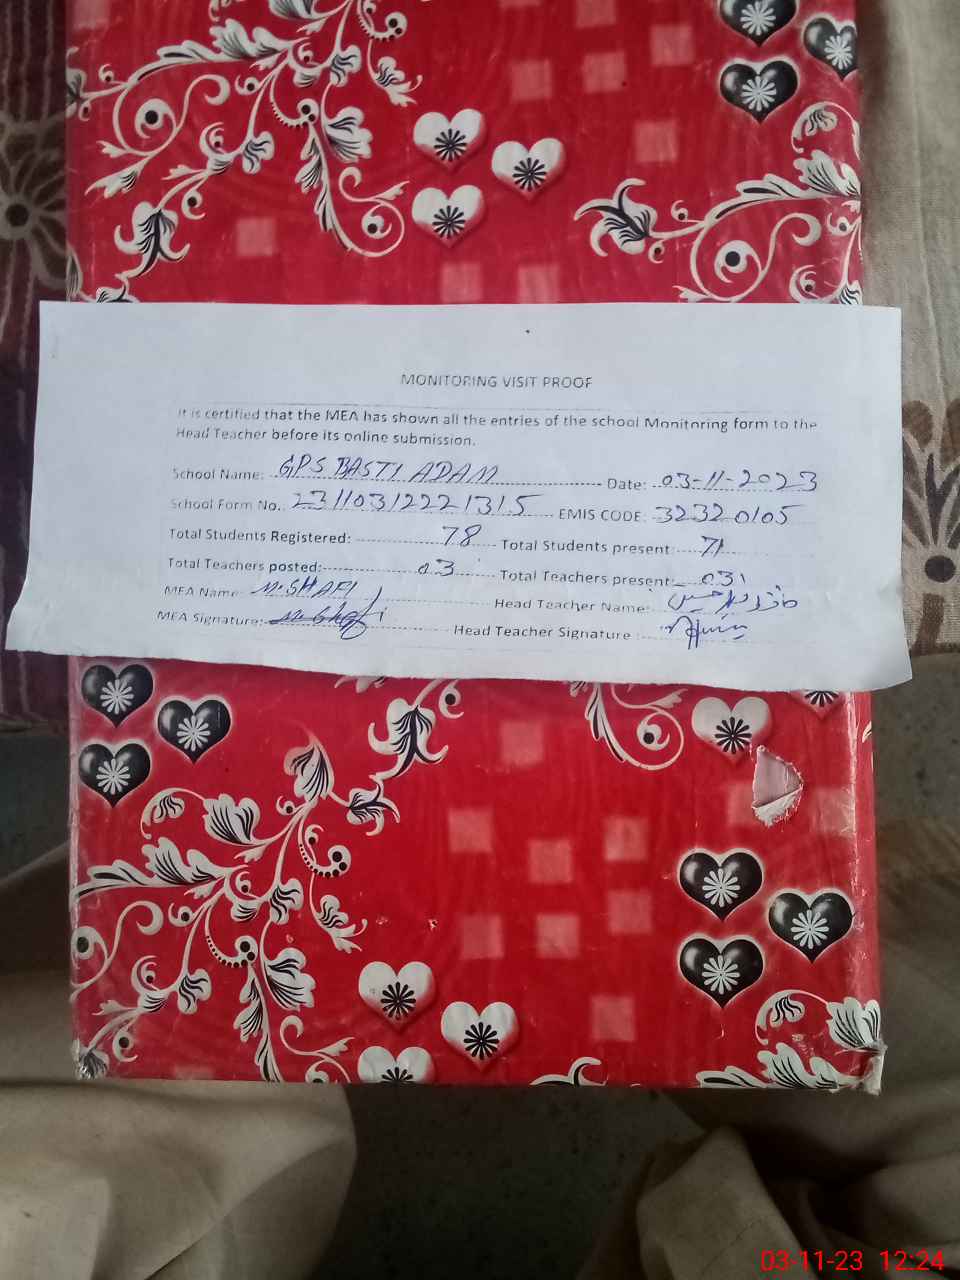 MONITORING VISIT PROOF
It is certified that the MEA has shown all the entries of the school Monitoring form to the
Head Teacher before its online submission.
School Name: GPS BASTI ADAM Date: 03-11-2023
School Form No.: 23110312221315 EMIS CODE: 32320105
Total Students Registered: 78 Total Students present: 71
Total Teachers posted: 03 Total Teachers present: 03
MEA Name: M. SHAFI Head Teacher Name: حسین
MEA Signature: M. Shafi Head Teacher Signature :
03-11-23 12:24